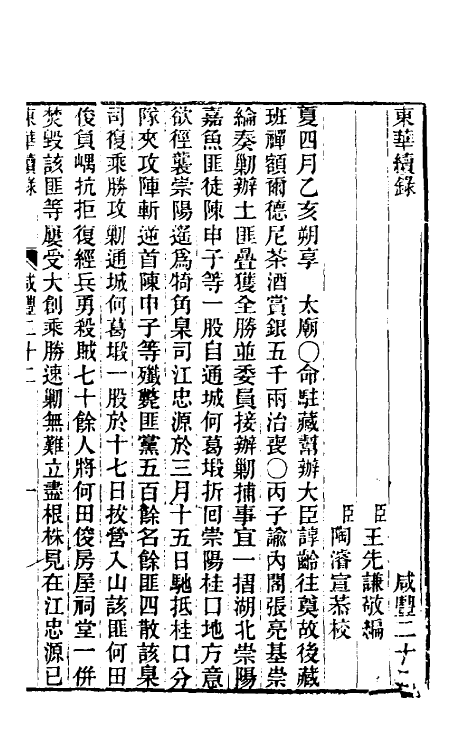 東華續錄
咸豐二十二
臣王先謙敬編
臣陶濬宣恭校
夏四月乙亥朔享　太廟〇命駐藏幫辦大臣諄齡往奠故後藏
班禪額爾德尼茶酒賞銀五千兩治喪〇丙子諭內閣張亮基崇
綸奏勦辦土匪疊獲全勝並委員接辦勦捕事宜一摺湖北崇陽
嘉魚匪徒陳申子等一股自通城何葛塅折回崇陽桂口地方意
欲徑襲崇陽遙爲犄角臬司江忠源於三月十五日馳抵桂口分
隊夾攻陣斬逆首陳申子等殲斃匪黨五百餘名餘匪四散該臬
司復乘勝攻勦通城何葛塅一股於十七日拔營入山該匪何田
俊負嵎抗拒復經兵勇殺賊七十餘人將何田俊房屋祠堂一併
焚毀該匪等屢受大創乘勝速勦無難立盡根株見在江忠源已
東華續錄
咸豐二十二
一